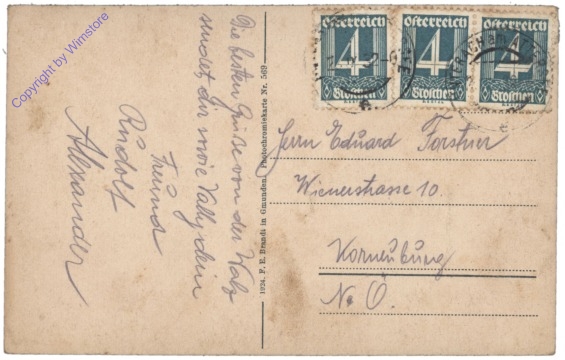 Copyright by Wimstore
Die besten Grüße von der Walz
sendet dir sowie Vally dein
Freund
Rudolf
Alexander
1924. F. E. Brandt in Gmunden. Photochromiekarte Nr. 569
Österreich
4
Groschen
Österreich
4
Groschen
Österreich
4
Groschen
Herrn Eduard Forstner
Wienerstrasse 10.
Korneuburg
N. Ö.